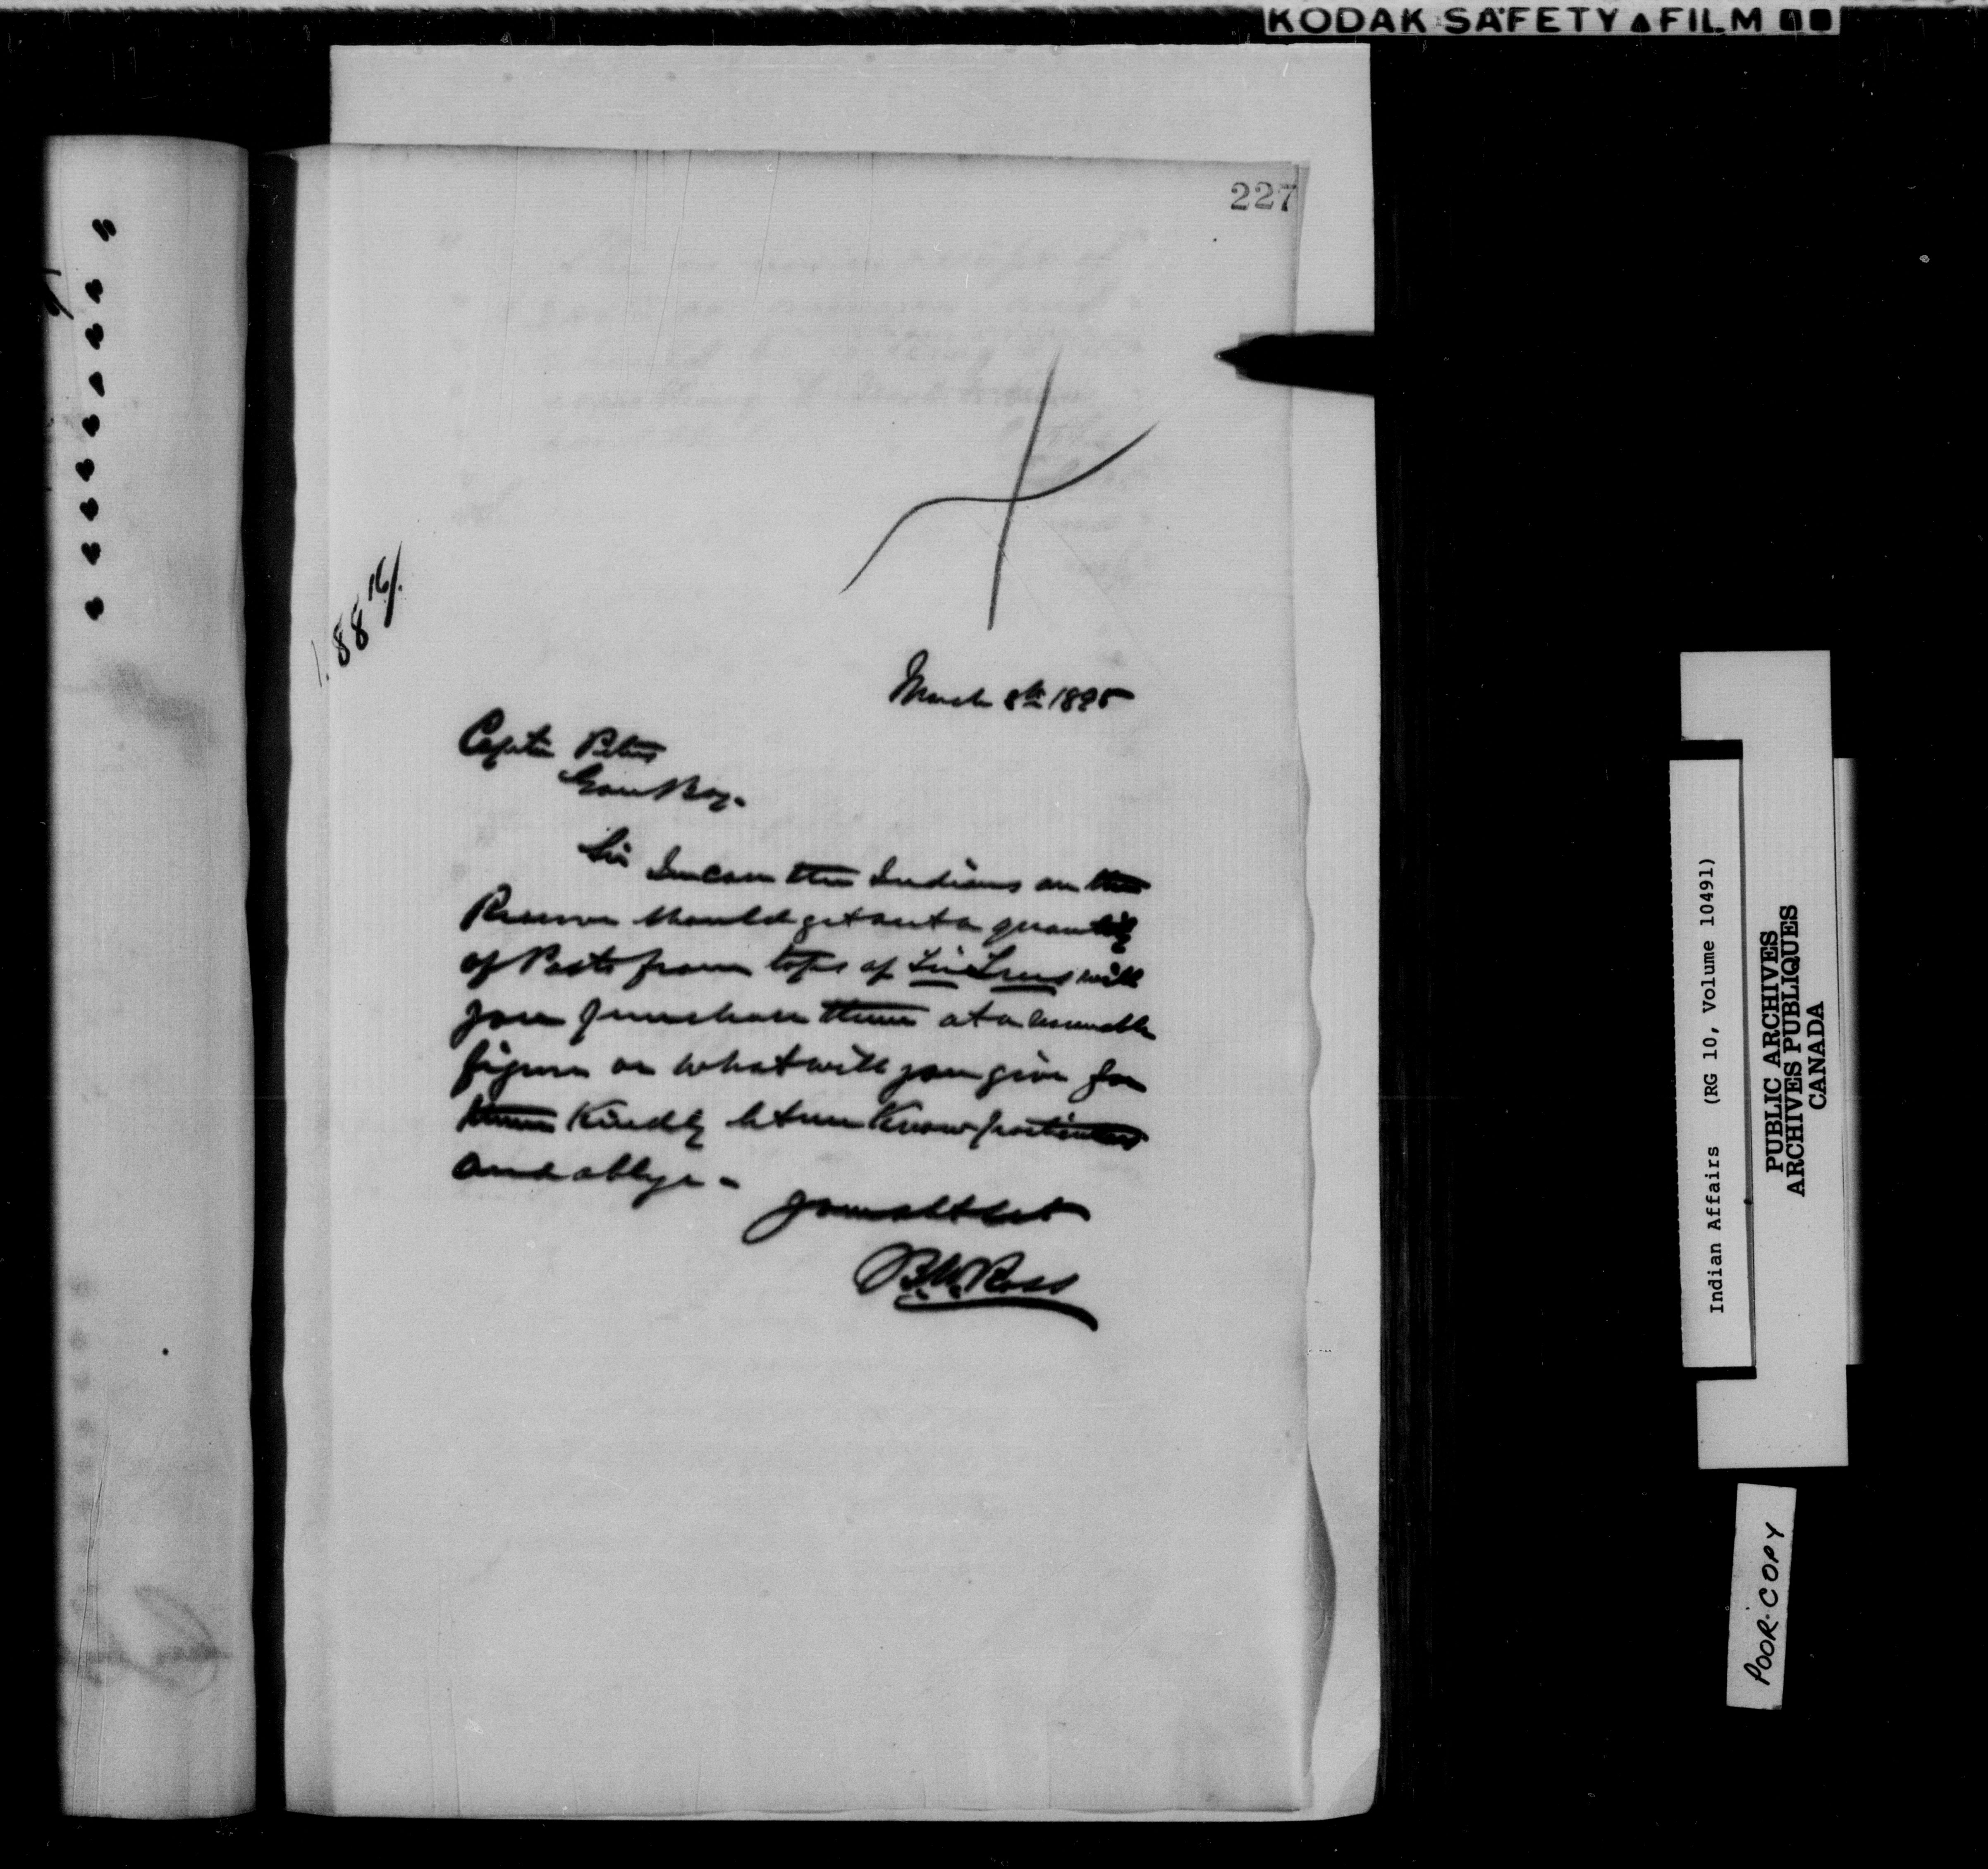 KODAK SAFETY FILM
227
188 16/.
March 8th 1895
Captn Peters
Gore Bay.
Sir In case the Indians on the
Reserve should get out a quantity
of Posts from tops of Tie Trees will
you purchase them at a reasonable
figure or what will you give for
them Kindly let me Know particulars
and oblige -
Your obt Svt
B.W. Ross
Indian Affairs (RG 10, Volume 10491)
PUBLIC ARCHIVES
ARCHIVES PUBLIQUES
CANADA
POOR COPY